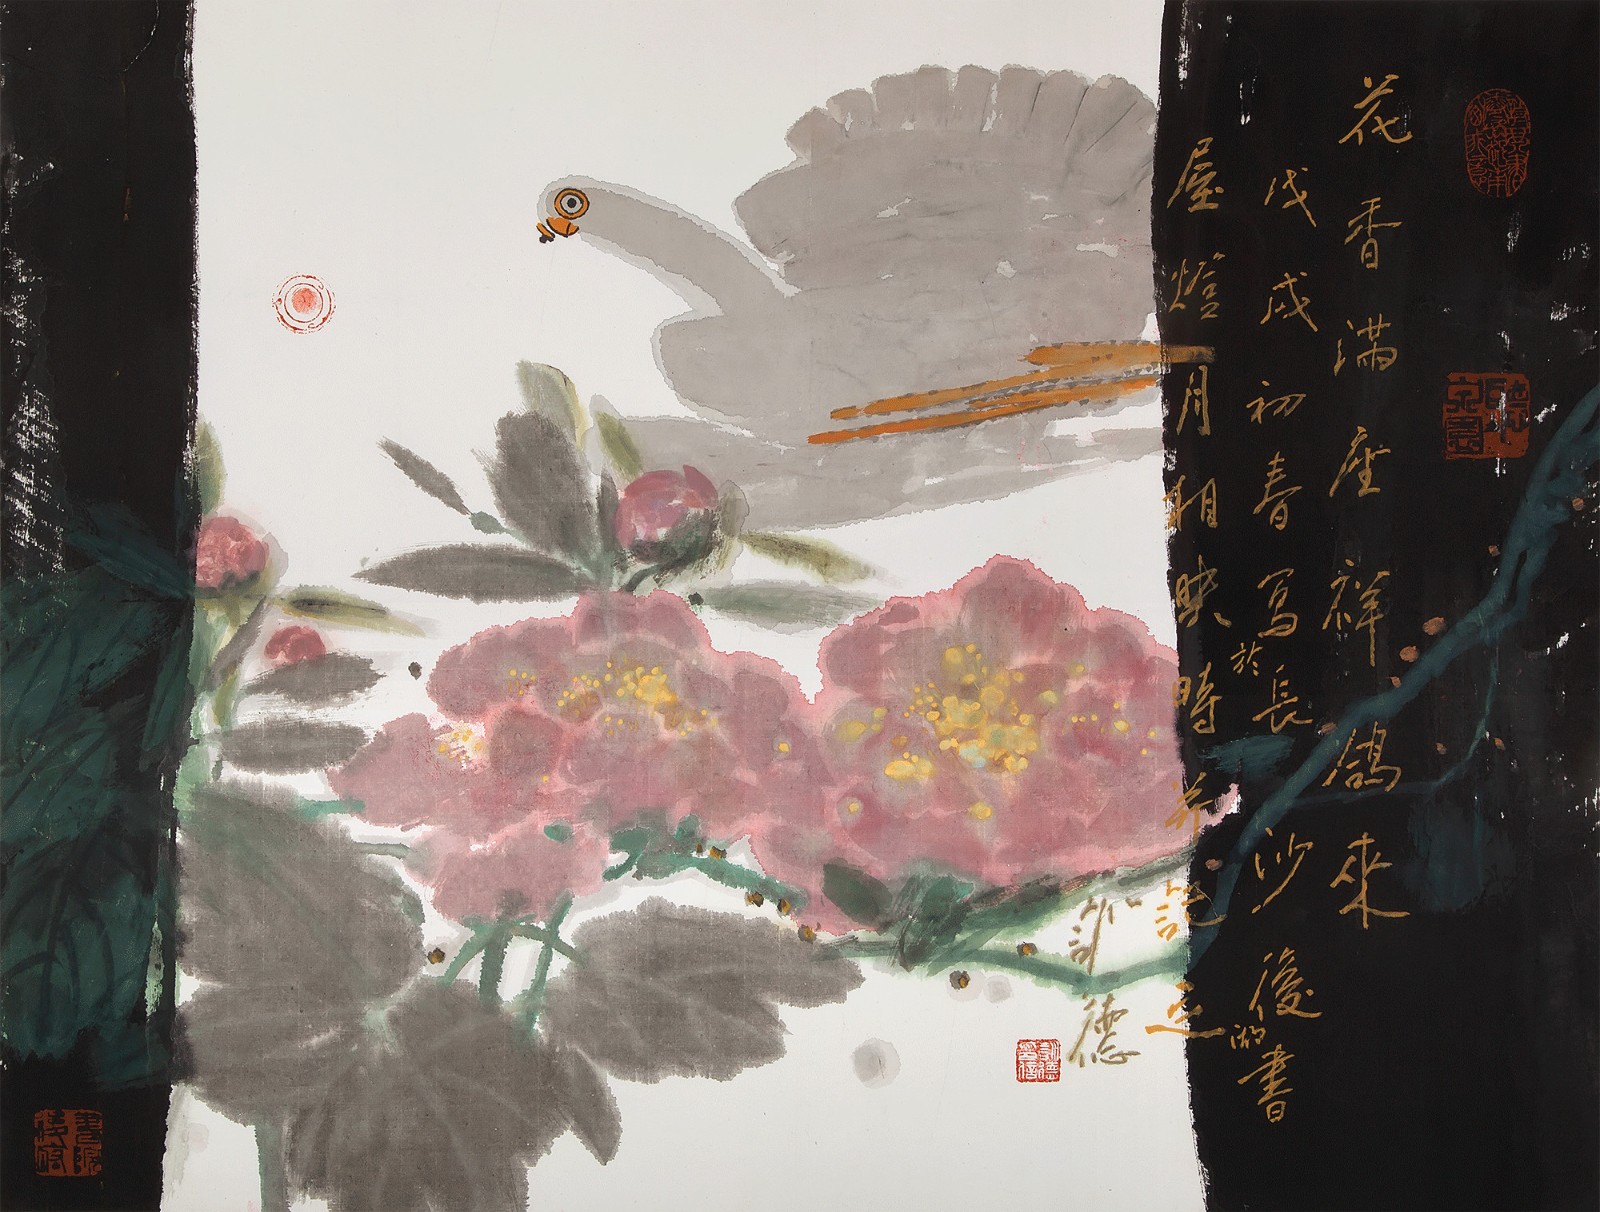 花香满座祥鴿來
戊戌初春写於長沙後湖書
屋燈月相映時并記之
德